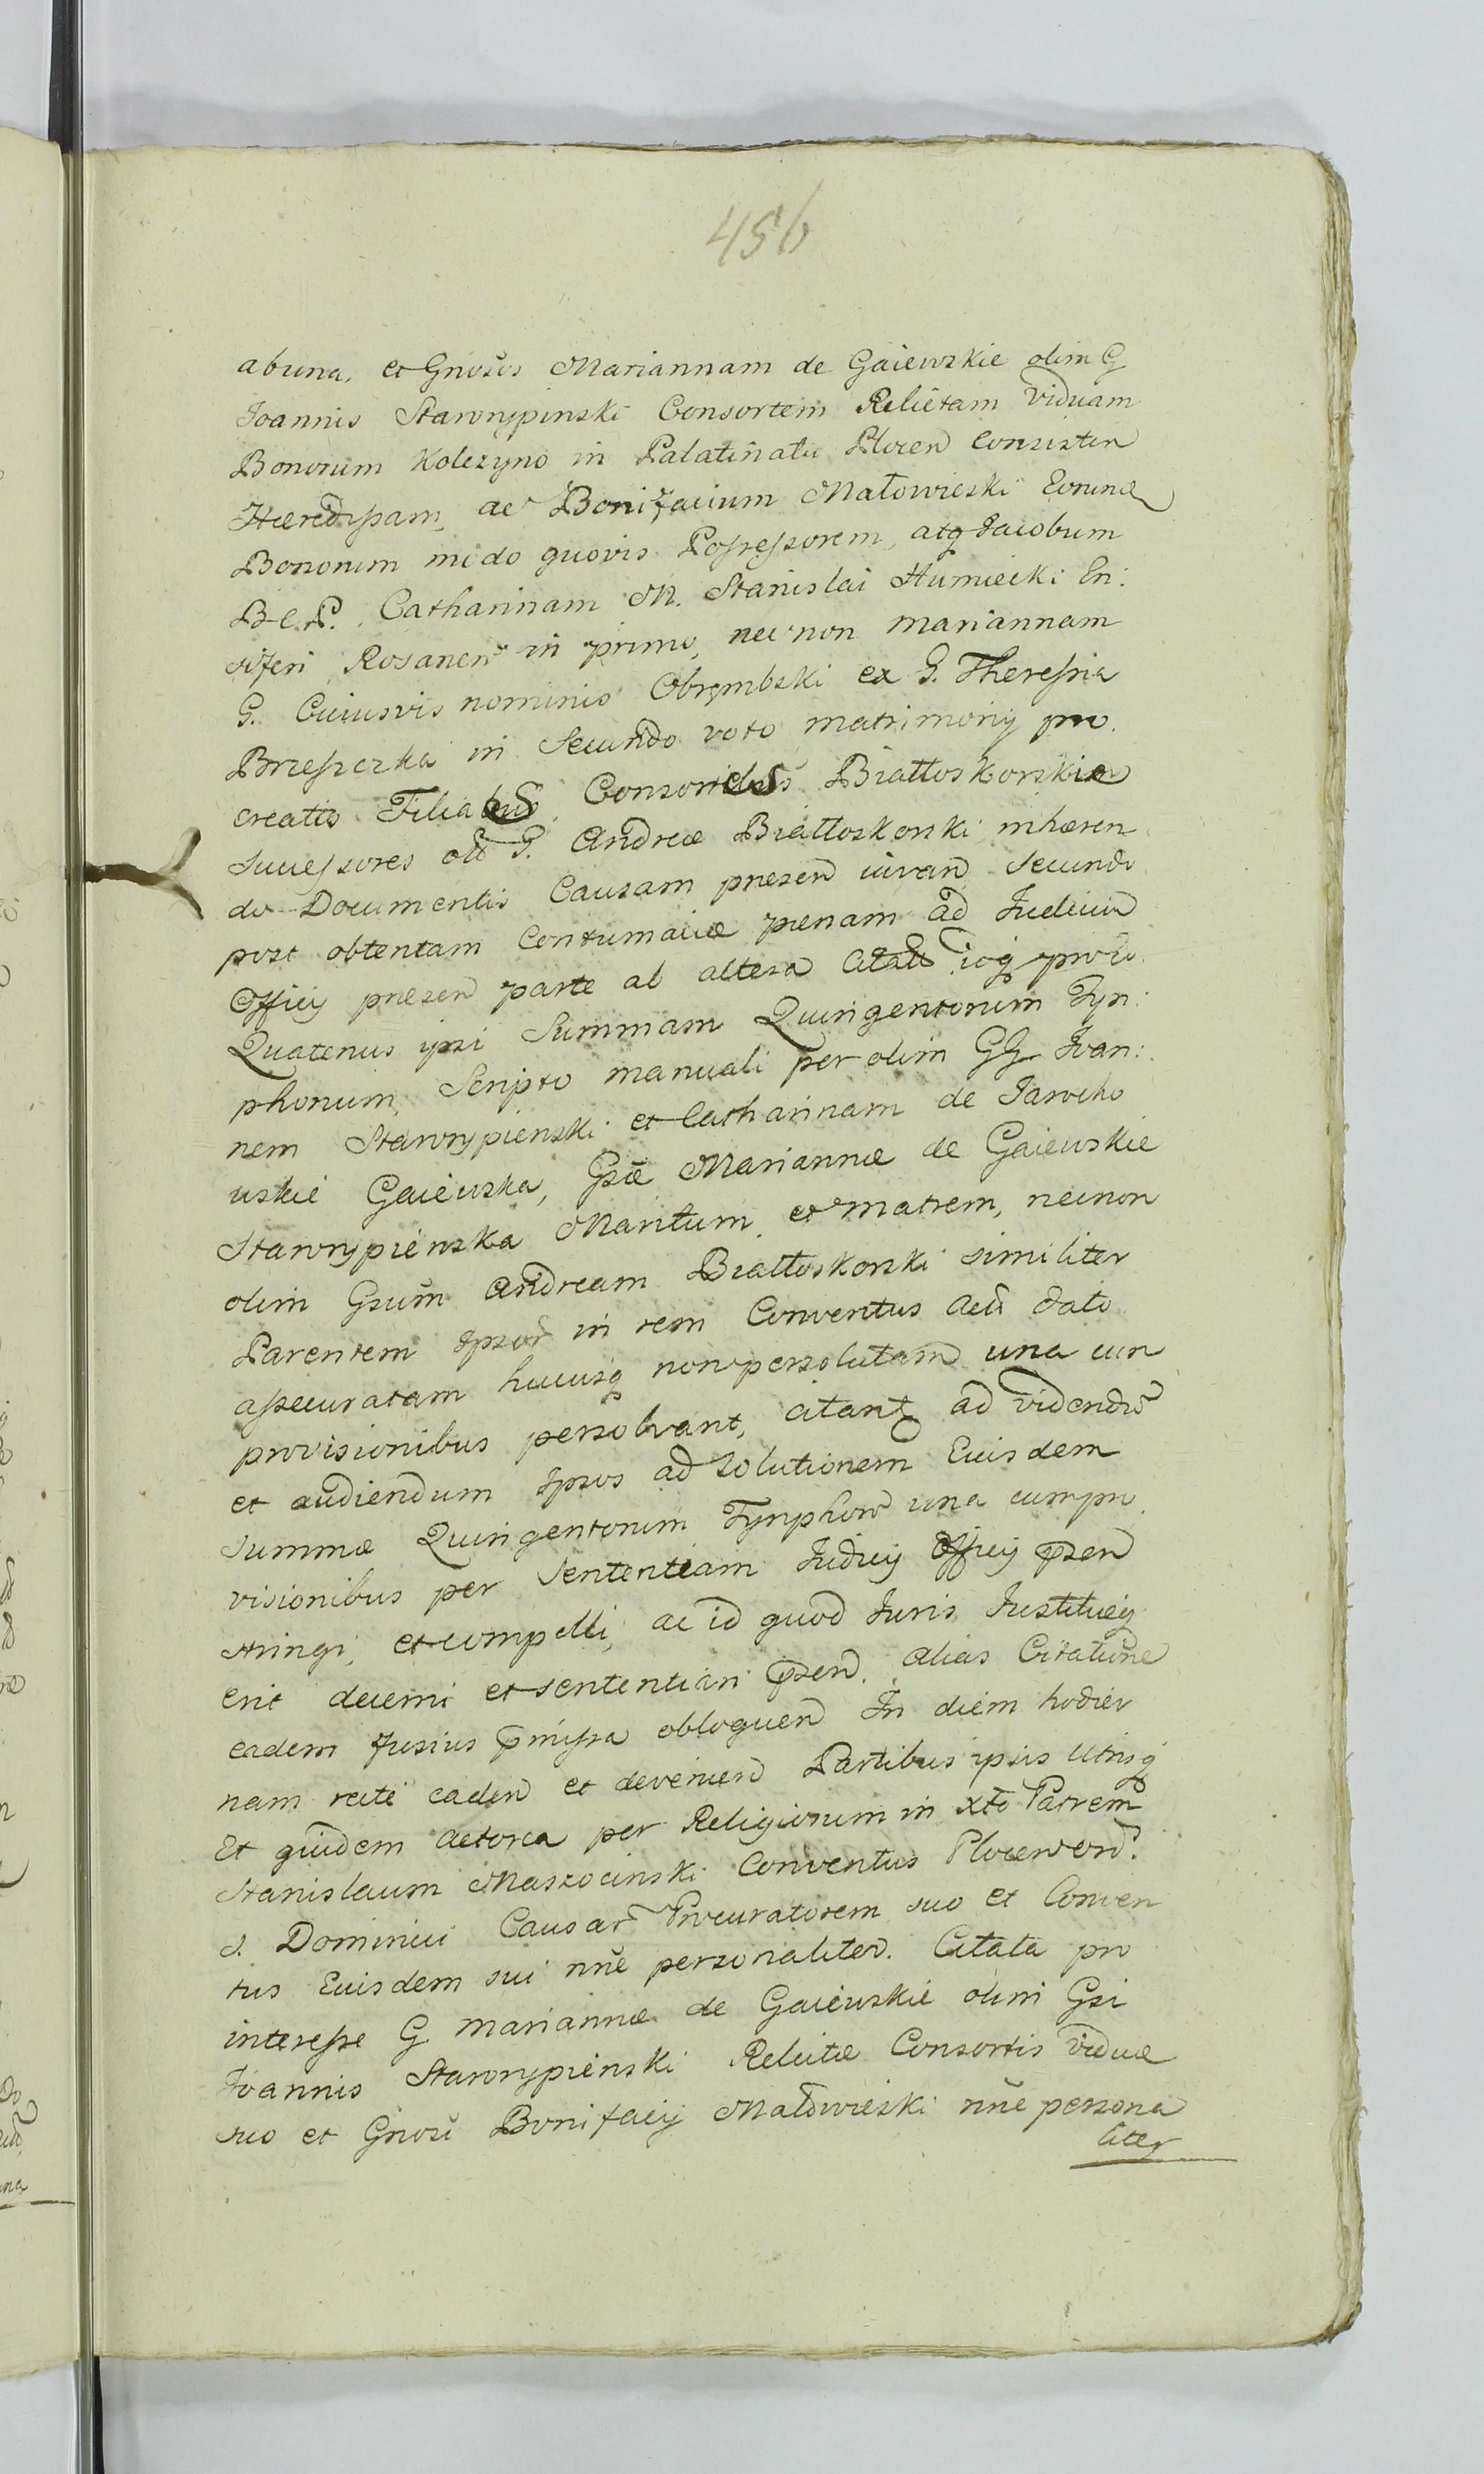 456
abuna, et Gnosos Mariannam de Gaiewskie olim G
Joannis Starorypinski Consortem Relictam Viduam
Bonorum Kolczyno in Palatinatu Plocen Consisten
Hæredissam, ac Bonifacium Małowieski Eorund
Bonorum modo quovis Possessorem, atq Jacobum
B. C. P. Catharinam M. Stanislai Humiecki En:
siferi Rosanen in primo, necnon Mariannam
G. Cuiusvis nominis Obrembski ex G. Theressia
Brzeszczka in Secundo voto matrimonij pro
creatis Filiabus, Consortes Białłoskorskie
Successores olt G. Andreæ Białłoskorski inhæren
do Documentis Causam presen iuvan Secundo
post obtentam Contumaciæ pœnam ad Iudicium
Officij presen parte ab altera Citat ioq pro eo
Quatenus ipsi Summam Quingentorum Tyn:
phonum, Scripto manuali per olim GG Ioan:
nem Starorypienski et Catharinam de Jarocho
wskie Gaiewska, Gsæ Mariannæ de Gaiewskie
Starorypienska Maritum et Matrem, necnon
olim Gsum Andream Białłoskorski similiter
Parentem Ipsor in rem Conventus Acti dato
assecuratam hucusq non persolutam una cum
provisionibus persolvant, citant ad videndu
et audiendum Ipsos ad solutionem Eiusdem
Summæ Quingentorum Tynphor una cum pro
visionibus per Sententiam Iudicij Officij psen
stringi, et compelli, ac id quod Iuris Iustitiæq
erit decerni et sententiari psen. alias Citatione
eadem fusius pmissa obloquen In diem hodier
nam recte caden et devenien Partibus ipsis Utrisq
Et quidem Actorea per Religiosum in Xto Patrem
Stanislaum Maszocinski Conventus Plocen Ord.
S. Dominici Causar Procuratorem suo et Conven
tus Eiusdem sui nne personaliter. Citata pro
interesse G Mariannæ de Gaiewskie olim Gsi
Joannis Starorypienski Relictæ Consortis Viduæ
suo et Gnosi Bonifacij Małowieski nne persona
liter